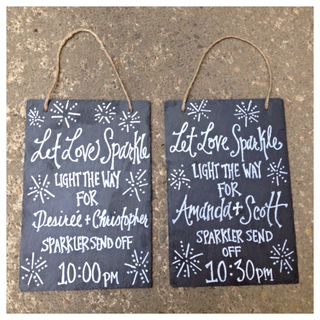 Let Love Sparkle
LIGHT THE WAY
FOR
Desireé + Christopher
SPARKLER SEND OFF
10:00 PM
Let Love Sparkle
LIGHT THE WAY
FOR
Amanda + Scott
SPARKLER SEND
OFF
10:30 PM